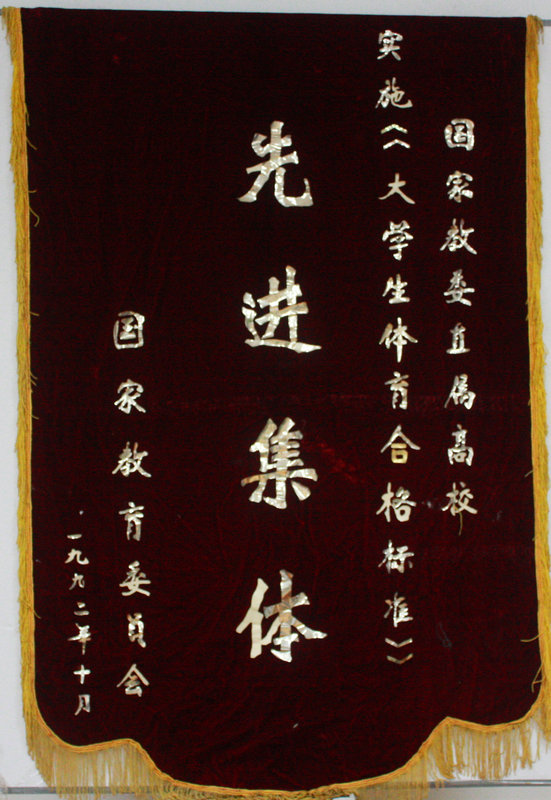 国家教委直属高校
实施《大学生体育合格标准》
先进集体
国家教育委员会
一九九二年十月